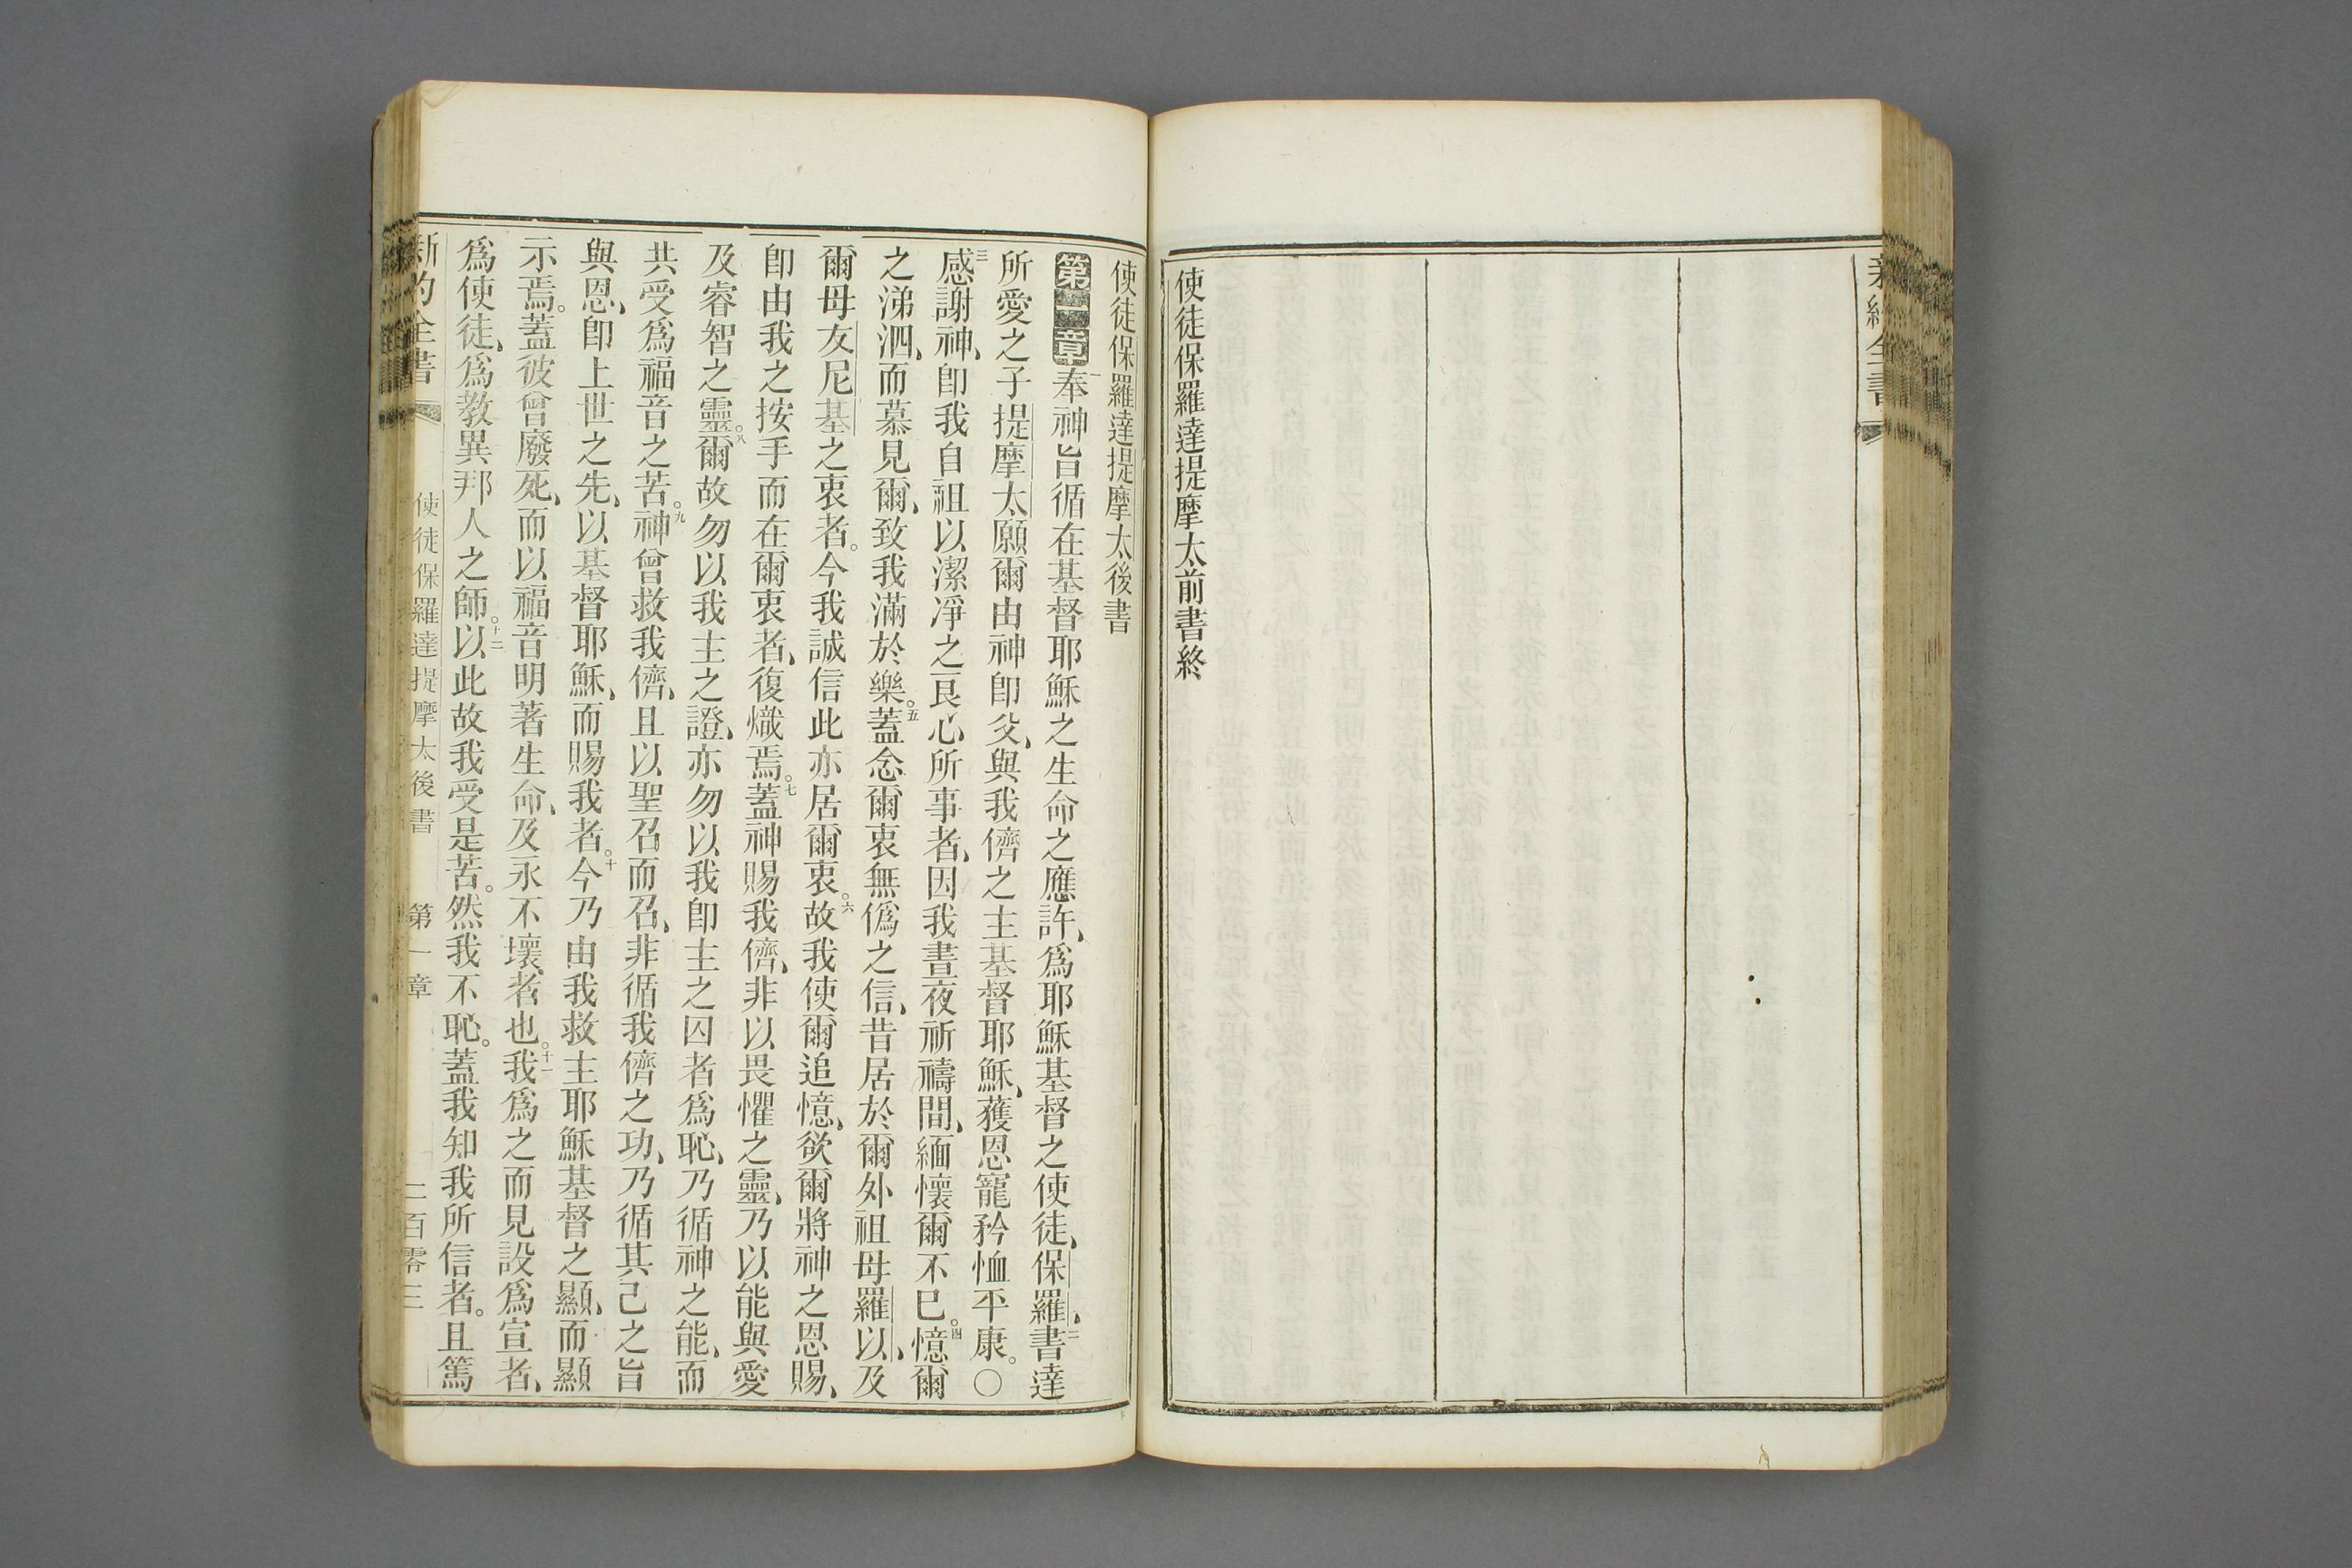 使徒保羅達提摩太前書終
使徒保羅達提摩太後書
第一章一奉神旨循在基督耶穌之生命之應許、爲耶穌基督之使徒、保羅、二書達
所愛之子提摩太願爾由神卽父、與我儕之主基督耶穌、獲恩寵矜恤平康。〇
三感謝神、卽我自祖以潔凈之良心、所事者、因我晝夜祈禱間、緬懷爾不已。四憶爾
之涕泗、而慕見爾、致我滿於樂。五蓋念爾衷無僞之信、昔居於爾外祖母羅以、及
爾母友尼基之衷者。今我誠信此亦居爾衷。六故我使爾追憶、欲爾將神之恩賜、
卽由我之按手而在爾衷者、復熾焉。七蓋神賜我儕、非以畏懼之靈、乃以能與愛
及睿智之靈。八爾故勿以我主之證、亦勿以我卽主之囚者爲恥、乃循神之能、而
共受爲福音之苦。九神曾救我儕、且以聖召而召、非循我儕之功、乃循其己之旨
與恩、卽上世之先、以基督耶穌、而賜我者。十今乃由我救主耶穌基督之顯、而顯
示焉。蓋彼曾廢死、而以福音明著生命、及永不壞者也。十一我爲之而見設爲宣者、
爲使徒、爲教異邦人之師。十二以此故我受是苦。然我不恥。蓋我知我所信者。且篤
新約全書 使徒保羅達提摩太後書 第一章 二百零三